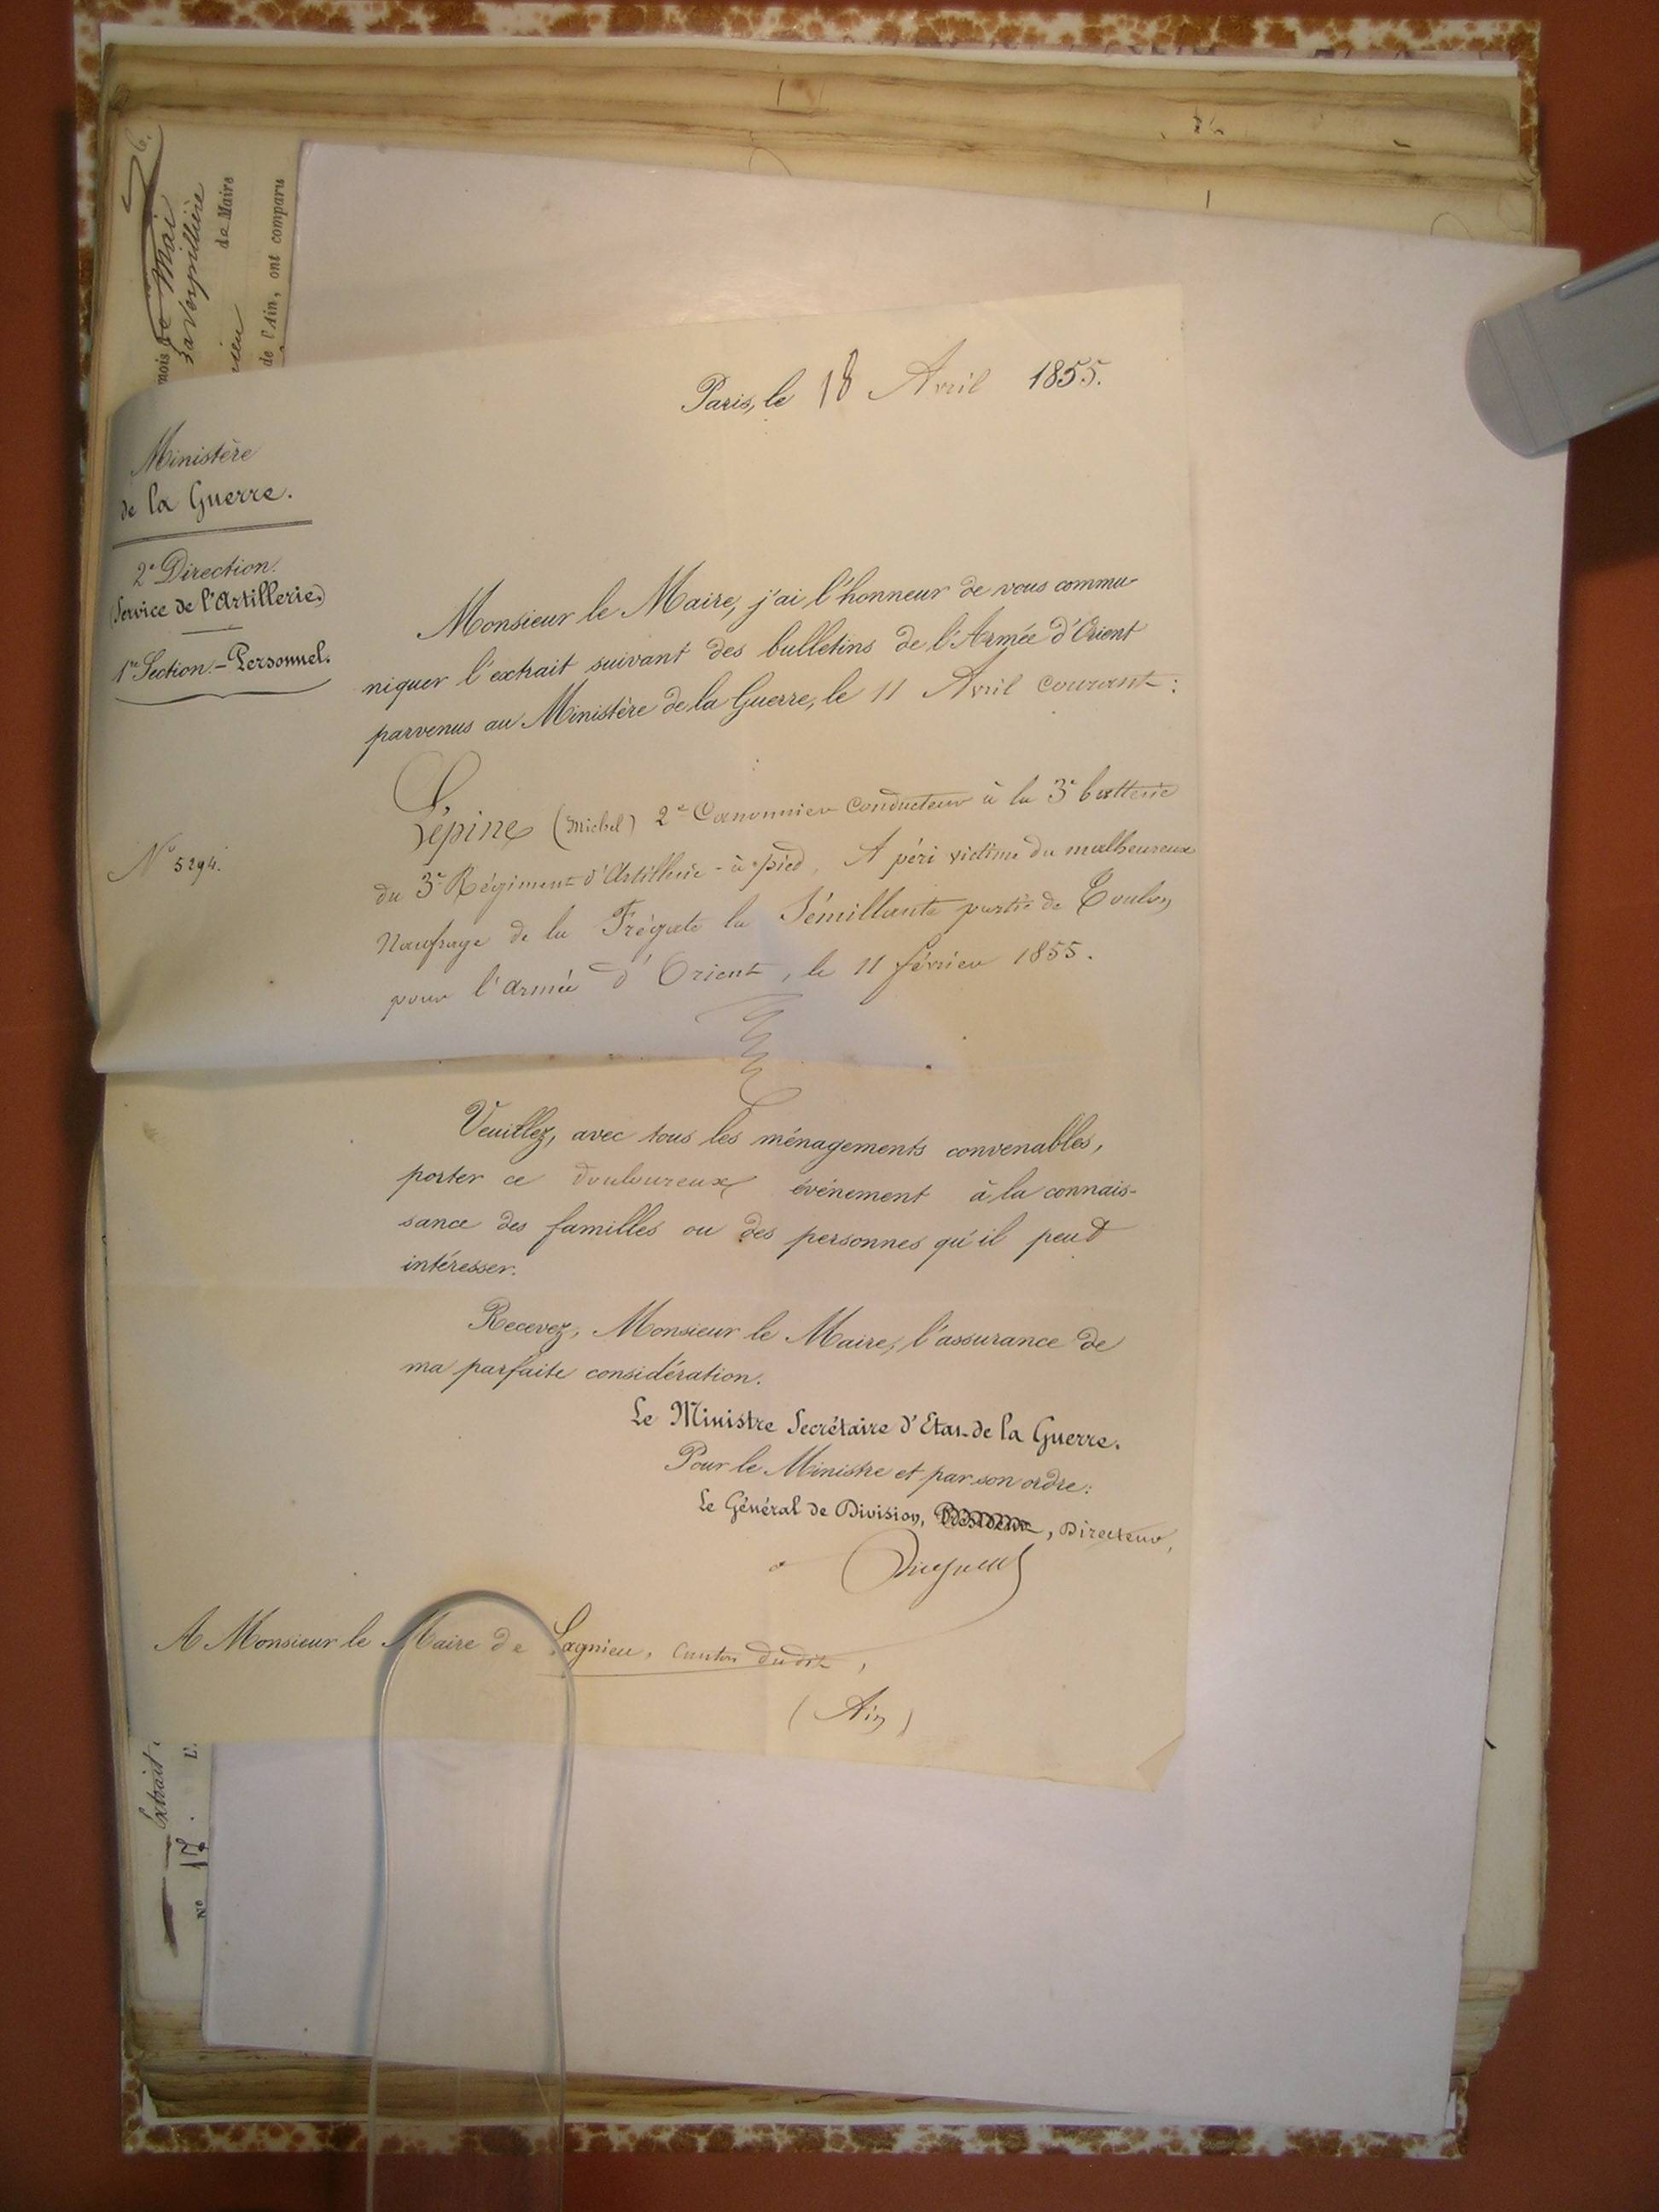 Paris, le 18 Avril 1855.
Ministère
de la Guerre.
2e Direction.
(Service de l'Artillerie)
1re Section.- Personnel.
N° 5294.
Monsieur le Maire, j'ai l'honneur de vous commu
niquer l'extrait suivant des bulletins de l'Armée d'Orient
parvenus au Ministère de la Guerre, le 11 Avril courant :
Lépine (Michel) 2e Canonnier Conducteur à la 3e batterie
du 3e Régiment d'Artillerie - à pied, A péri victime du malheureux
Naufrage de la Frégate la Sémillante partie de Toulon
pour l'armée d'Orient, le 11 février 1855.
Veuillez, avec tous les ménagements convenables,
porter ce douloureux événement à la connais-
sance des familles ou des personnes qu'il peut
intéresser.
Recevez, Monsieur le Maire, l'assurance de
ma parfaite considération.
Le Ministre Secrétaire d'Etat de la Guerre.
Pour le Ministre et par son ordre:
Le Général de Division, , Directeur,
A Monsieur le Maire de Lagnieu, Canton dudit,
(Ain)
6.
mois de Mai
Laverpillière
de Maire
de l'Ain, ont comparu
Extrait
N° 17.